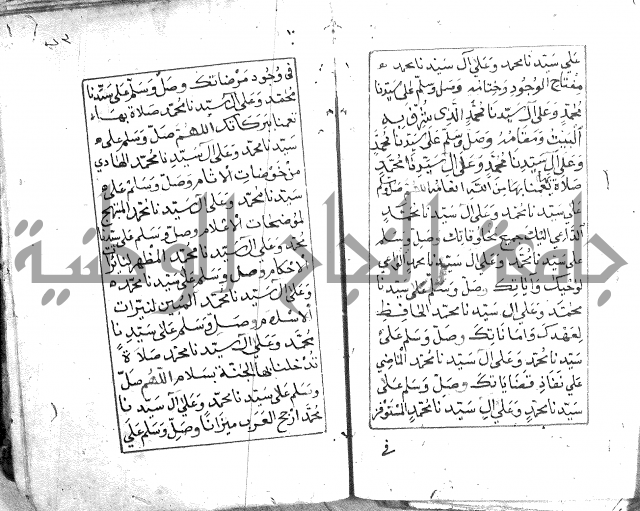 على سيدنا محمد وعلى آل سيدنا محمد
مفتاح الوجود وختامه وصل وسلم على سيدنا
محمد وعلى آل سيدنا محمد الذي شرق به
البيت ومقامه وصل وسلم على سيدنا محمد
وعلى آل سيدنا محمد وعلى آل سيدنا محمد
صلاة تعمنا بها من الله اللهم صل وسلم
على سيدنا محمد وعلى آل سيدنا محمد
الداعي اليك جميع مخلوقاتك وصل وسلم
على سيدنا محمد وعلى آل سيدنا محمد
لوحيك واياتك وصل وسلم على سيدنا
محمد وعلى آل سيدنا محمد الحافظ
لعهدك واماناتك وصل وسلم على
سيدنا محمد وعلى آل سيدنا محمد الماضي
على نفاذ قضاياتك وصل وسلم على
سيدنا محمد وعلى آل سيدنا محمد المستوفز
في
في وجود مرضاتك وصل وسلم على سيدنا
محمد وعلى آل سيدنا محمد صلاة بهاء
تعمنا بركاتك اللهم صل وسلم على
سيدنا محمد وعلى آل سيدنا محمد الهادي
من خوضات الاثام وصل وسلم على
سيدنا محمد وعلى آل سيدنا محمد المبهج
لموضحات الاعلام وصل وسلم على سيدنا
محمد وعلى آل سيدنا محمد المظهر
الاحكام وصل وسلم على سيدنا محمد
وعلى آل سيدنا محمد المبين لنيرات
الاسلام وصل وسلم على سيدنا
محمد وعلى آل سيدنا محمد صلاة
تدخلنا بها الجنة بسلام اللهم صل
وسلم على سيدنا محمد وعلى آل سيدنا
محمد ارجح العرب ميزانا وصل وسلم على
جامعة النجاح الوطنية